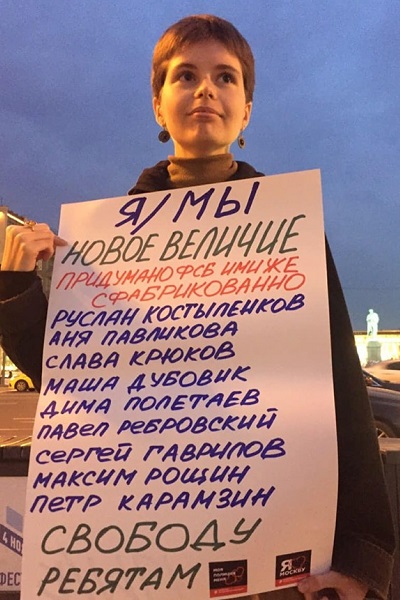 Я/МЫ
НОВОЕ ВЕЛИЧИЕ
ПРИДУМАНО ФСБ ИМИ ЖЕ
СФАБРИКОВАННО
РУСЛАН КОСТЫЛЕНКОВ
АНЯ ПАВЛИКОВА
СЛАВА КРЮКОВ
МАША ДУБОВИК
ДИМА ПОЛЕТАЕВ
ПАВЕЛ РЕБРОВСКИЙ
СЕРГЕЙ ГАВРИЛОВ
МАКСИМ РОЩИН
ПЕТР КАРАМЗИН
СВОБОДУ
РЕБЯТАМ
МОЯ
ПОЛИЦИЯ
МЕНЯ
Я
МОСКВУ
4 НО
ФЕС